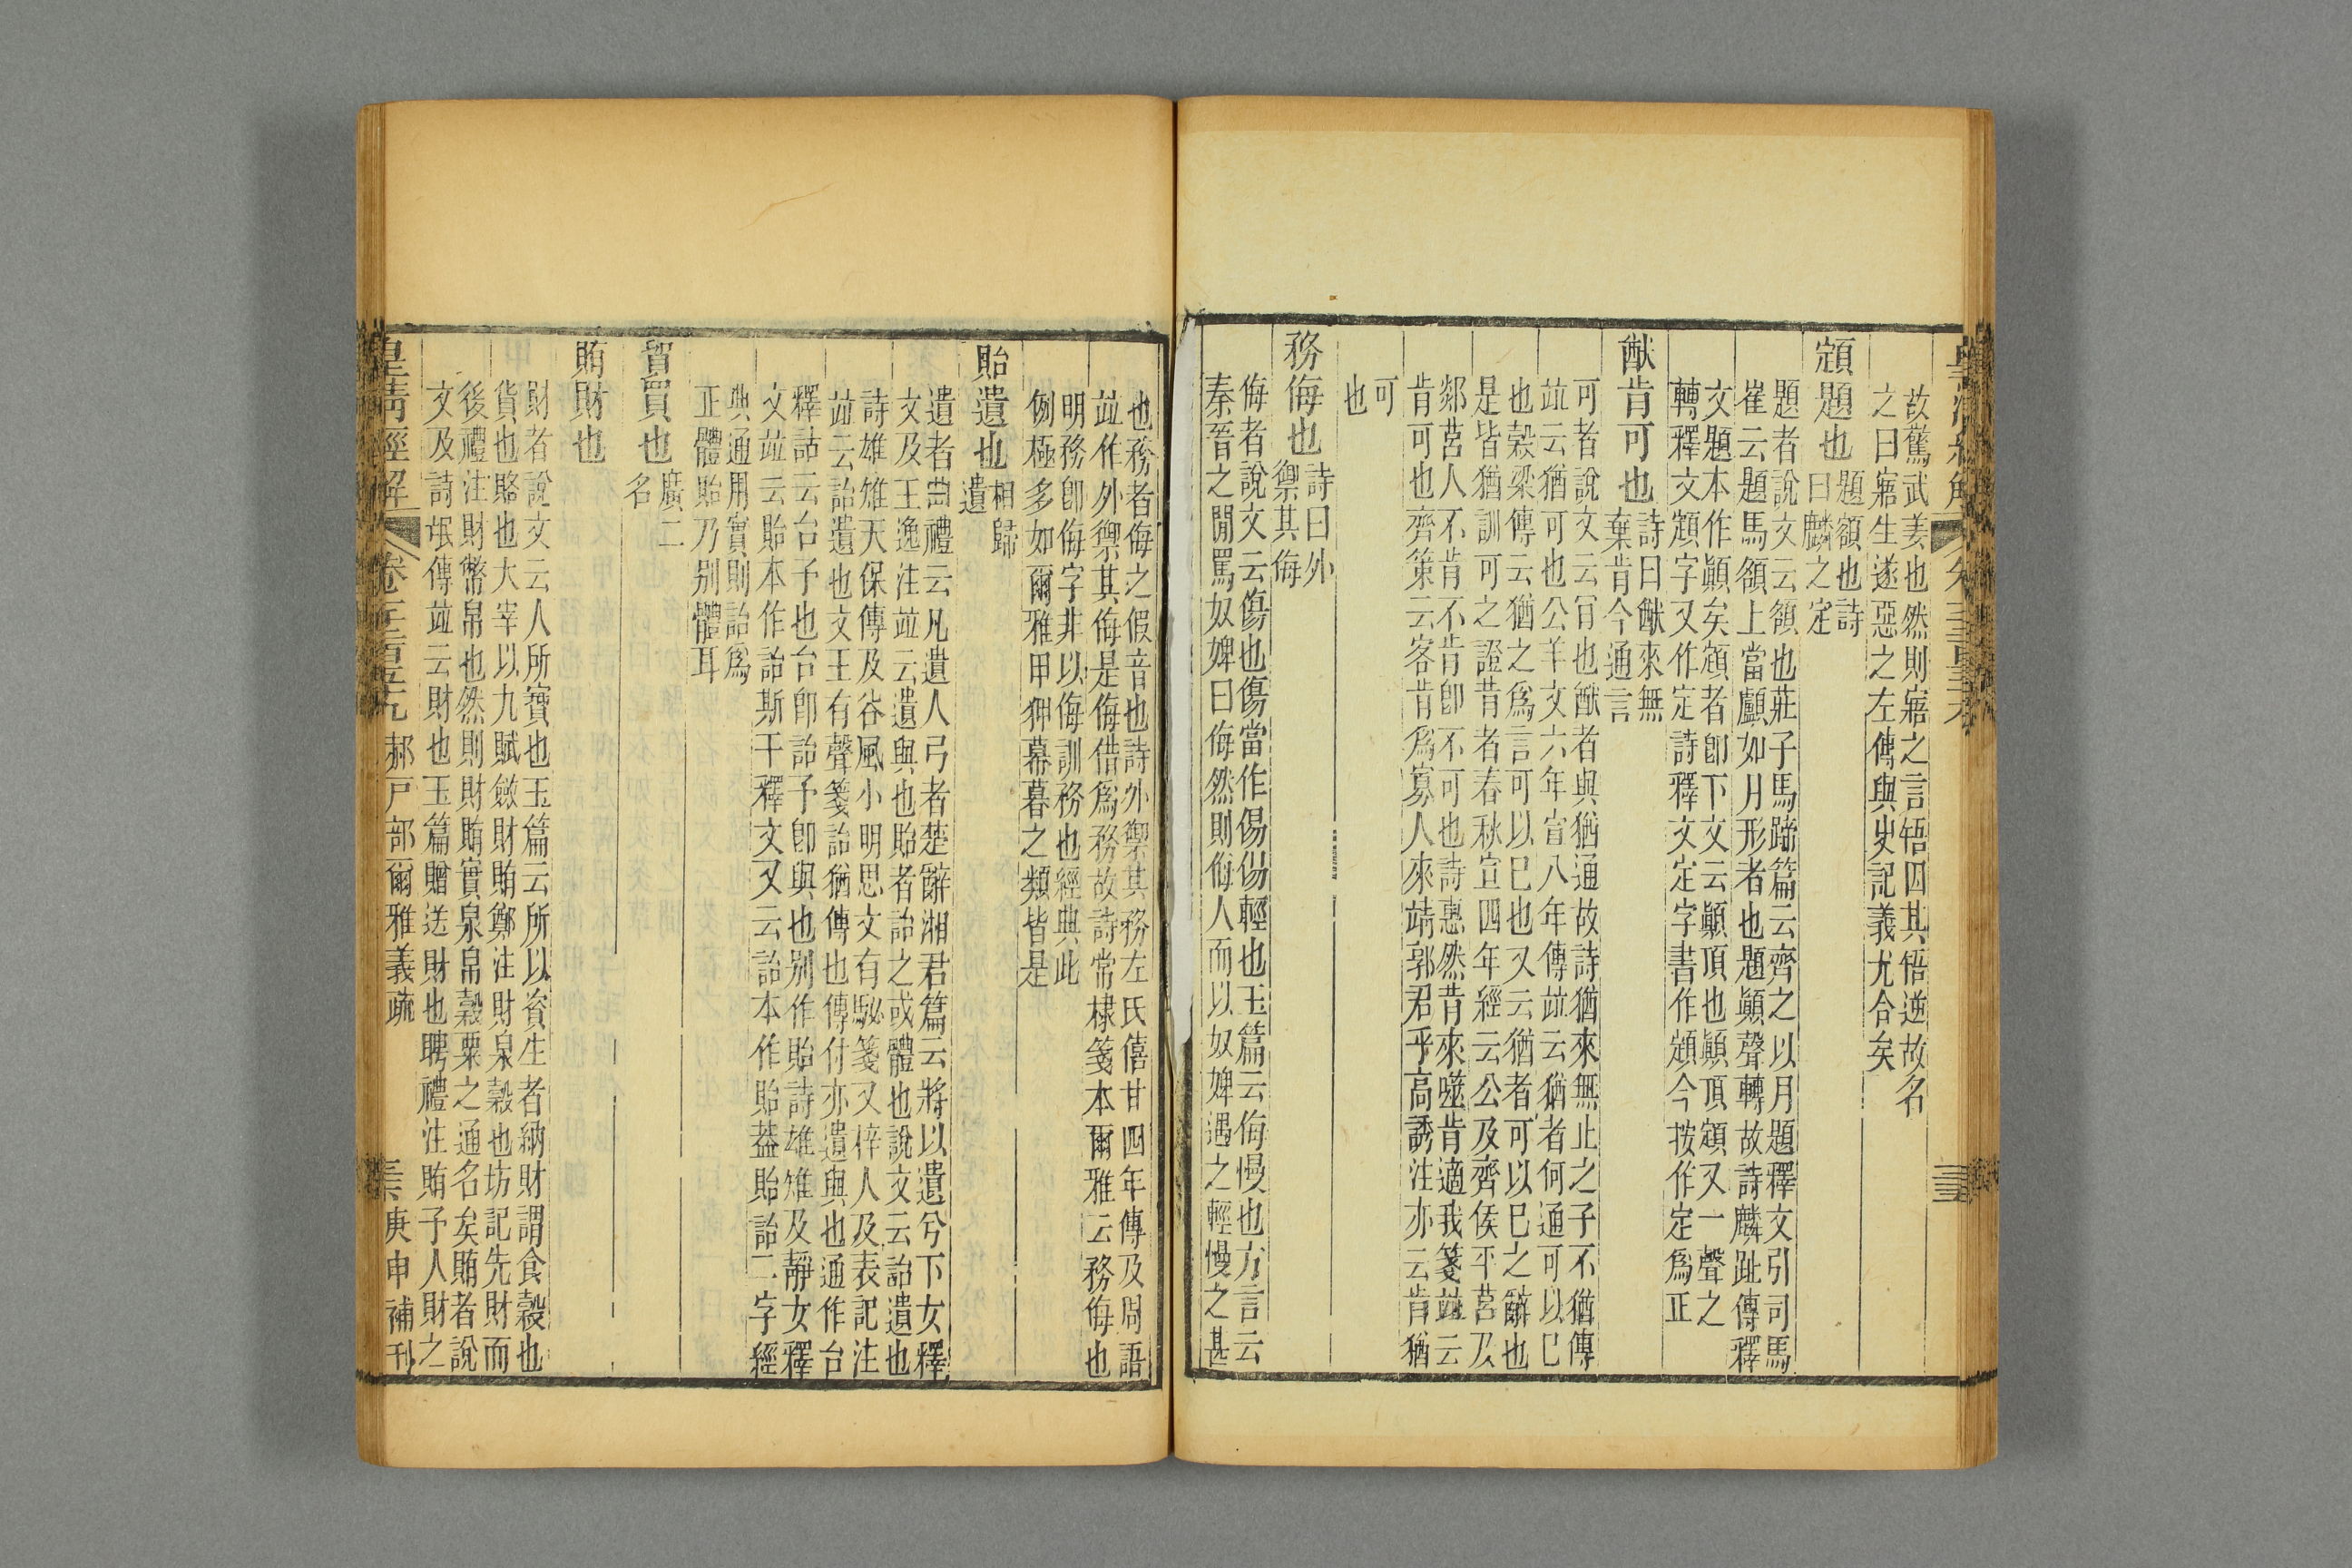 故驚武姜也然則寤之言牾因其牾逆故名
之曰寤生遂惡之左傳與史記義尤合矣
顁題也
題額也詩
曰麟之定
題者說文云額也莊子馬蹄篇云齊之以月題釋文引司馬
崔云題馬額上當顱如月形者也題顚聲轉故詩麟趾傳釋
文題本作顚矣顁者卽下文云顚頂也顚頂顁又一聲之
轉釋文顁字又作定詩釋文定字書作顁今按作定爲正
猷肯可也
詩曰猷來無
棄肯今通言
可者說文云肎也猷者與猶通故詩猶來無止之子不猶傳
竝云猶可也公羊文六年宣八年傳竝云猶者何通可以已
也穀梁傳云猶之爲言可以已也又云猶者可以已之辭也
是皆猶訓可之證肯者春秋宣四年經云公及齊侯平莒及
郯莒人不肯不肯卽不可也詩惠然肯來噬肯適我箋竝云
肯可也齊策云客肯爲寡人來靖郭君乎高誘注亦云肯猶
可
也
務侮也
詩曰外
禦其侮
侮者說文云傷也傷當作傷傷輕也玉篇云侮慢也方言云
秦晉之閒罵奴婢曰侮然則侮人而以奴婢遇之輕慢之甚
也務者侮之假音也詩外禦其務左氏僖廿四年傳及周語
竝作外禦其侮是侮借爲務故詩常棣箋本爾雅云務侮也
明務卽侮字非以侮訓務也經典此
例極多如爾雅甲狎幕暮之類皆是
貽遺也
相歸
遺
遺者曲禮云凡遺人弓者楚辭湘君篇云將以遺兮下女釋
文及王逸注竝云遺與也貽者詒之或體也說文云詒遺也
詩雄雉天保傳及谷風小明思文有駜箋又梓人及表記注
竝云詒遺也文王有聲箋詒猶傳也傳付亦遺與也通作台
釋詁云台予也台卽詒予卽與也别作貽詩雄雉及靜女釋
文竝云貽本作詒斯干釋文又云詒本作貽葢貽詒二字經
典通用實則詒爲
正體貽乃别體耳
貿買也
廣二
名
賄財也
財者說文云人所寶也玉篇云所以資生者納財謂食穀也
貨也賂也大宰以九賦斂財賄鄭注財泉穀也坊記先財而
後禮注財幣帛也然則財賄實泉帛穀粟之通名矣賄者說
文及詩氓傳竝云財也玉篇贈送財也聘禮注賄予人財之
皇淸經解
卷一千二百五十九 郝戶部爾雅義疏
庚申補刊